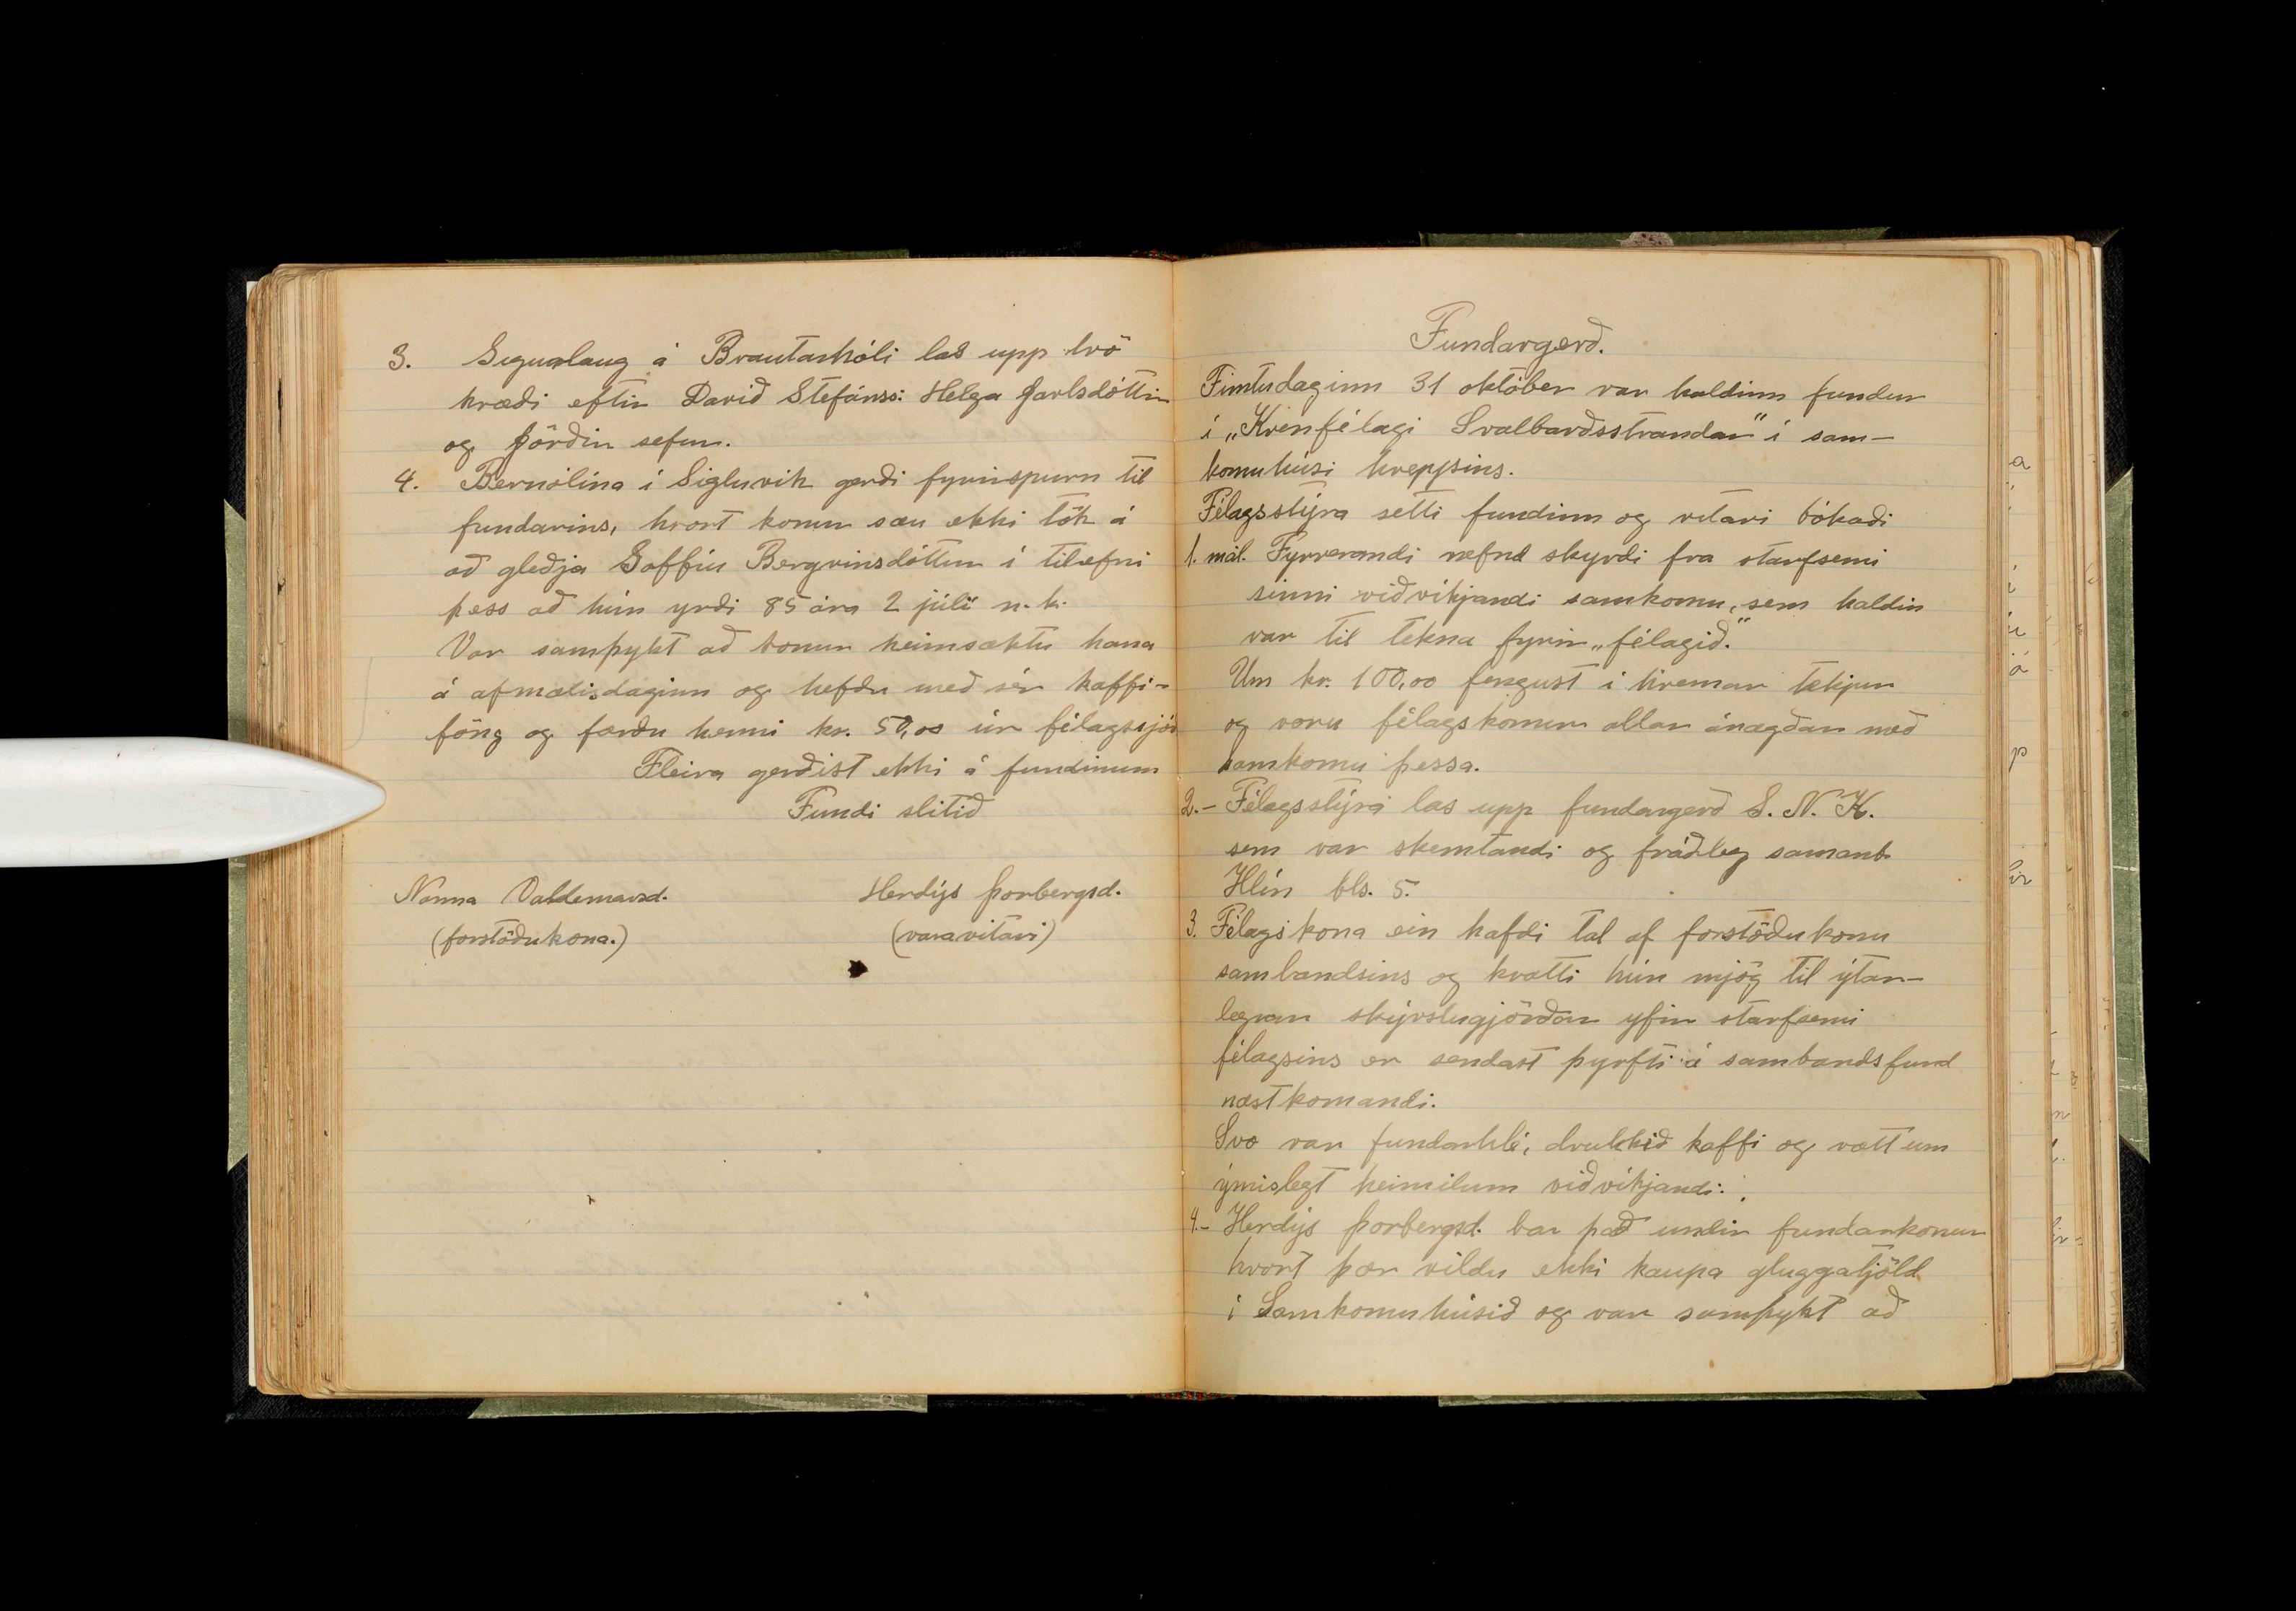 3. Sigurlaug á Brautarhóli las upp tvö
kvæði eftir Davið Stefánss: Helga Jarlsdóttir
og Jörðin sefur.
4. Bernólína í Sigluvik gerði fyrirspurn til
fundarins, hvort konur sæu ekki tök á
að gleðja Soffíu Bergvinsdóttur í tilefni
þess að hún yrði 85 ára 2 júlí n.k.
Var samþykt að konur heimsæktu hana
á afmælisdaginn og hefðu með sér kaffi-
föng og færðu henni kr. 50,00 úr félagssjóð
Fleira gerðist ekki á fundinum
Fundi slitið
Nanna Valdemarsd. Herdýs Þorbergsd.
(forstöðukona.) (vararitari)
Fundargerð.
Fimtudaginn 31 október var haldinn fundur
í „Kvenfélagi Svalbarðsstrandar" í sam-
komuhúsi hreppsins.
Félagsstýra setti fundinn og ritari bókaði
1. mál. Fyrverandi nefnd skyrdi fra starfsemi
sinni viðvíkjandi samkomu, sem haldin
var til tekna fyrir „félagið."
Um kr. 100,00 fengust í hreinar tekjur
og voru félagskonur allar ánægðar með
samkomu þessa.
2.- Félagsstýra las upp fundargerð S. N. K.
sem var skemtandi og fróðleg samanb.
Hlín bls. 5.
3. Félagskona ein hafdi tal af forstöðukonu
sambandsins og hvatti hún mjög til ýtar-
legrar skýrslugjörðar yfir starfsemi
félagsins er sendast þyrfti á sambandsfund
næstkomandi.
Svo var fundarhlé, drukkið kaffi og rætt um
ýmislegt heimilum viðvíkjandi.
4.- Herdýs Þorbergsd. bar það undir fundarkonur
hvort þær vildu ekki kaupa gluggatjöld
í Samkomuhúsið og var samþykt að